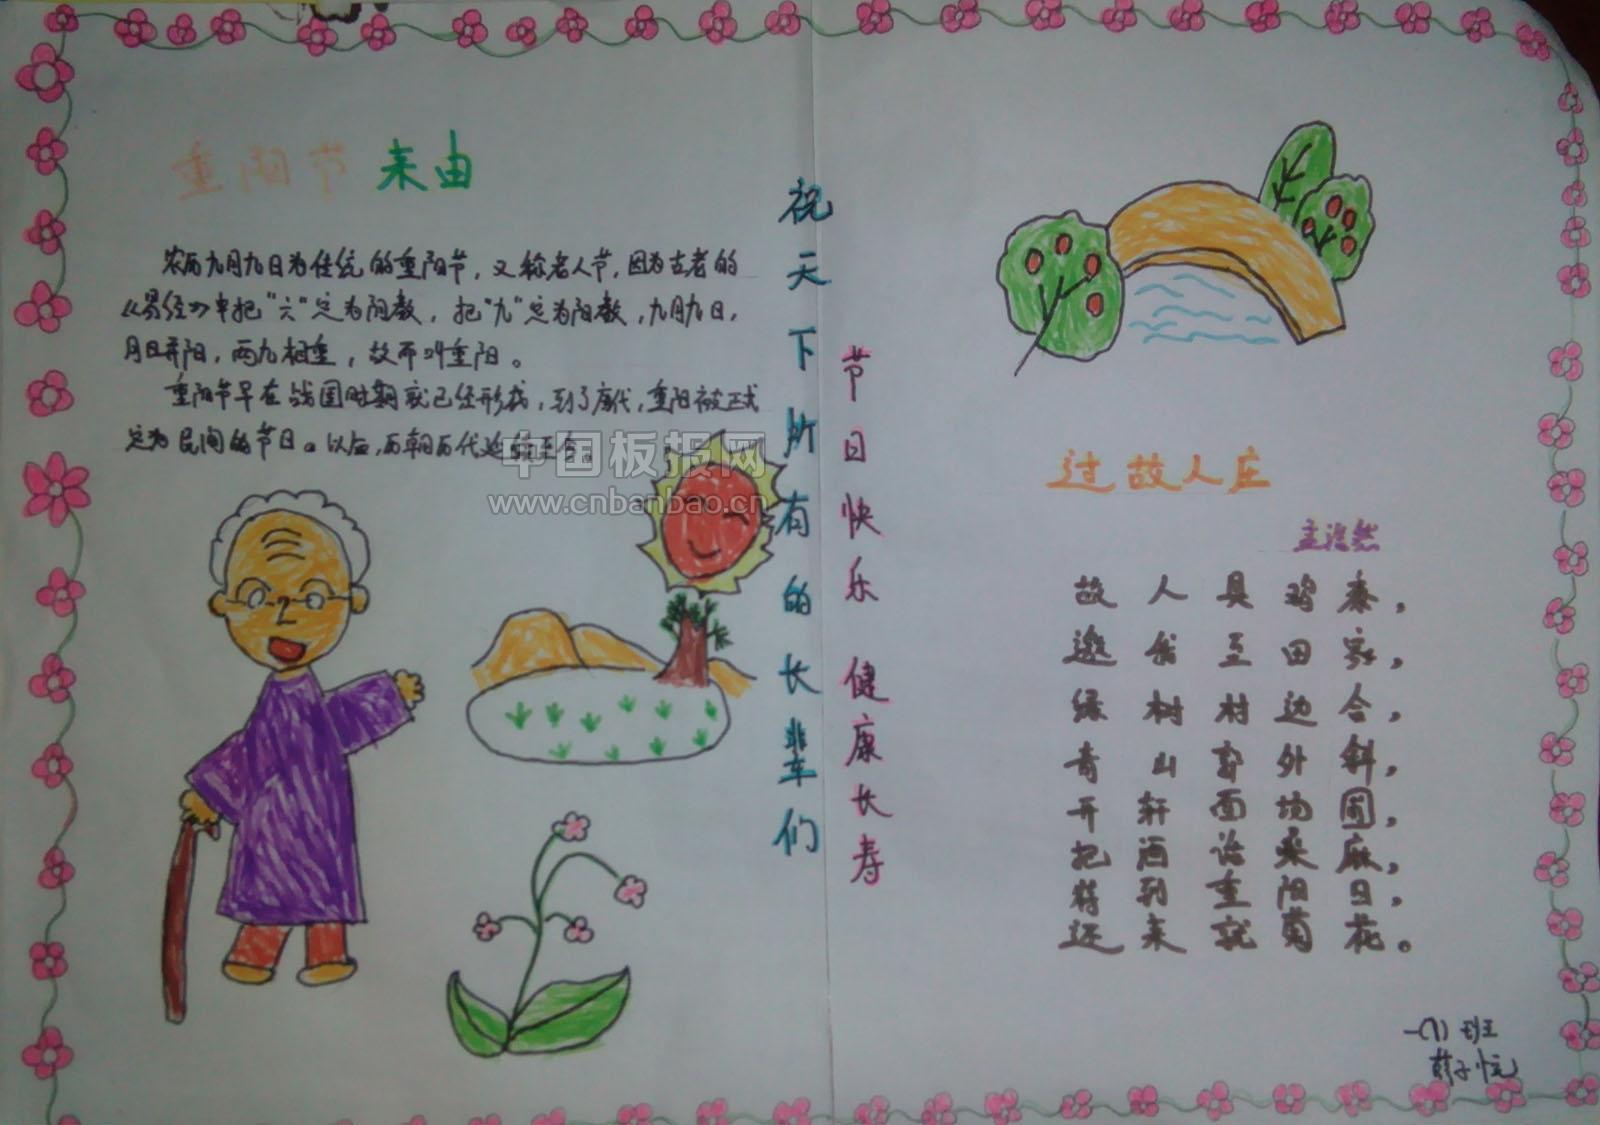 重阳节来由
农历九月九日为传统的重阳节，又称老人节，因为古老的
《易经》中把“六”定为阴数，把“九”定为阳数，九月九日，
月日并阳，两九相重，故而叫重阳。
重阳节早在战国时期就已经形成，到了唐代，重阳被正式
定为民间的节日。以后，历朝历代延
中国板报网
www.cnbanbao.cn
祝天下所有的长辈们
节日快乐 健康长寿
过故人庄
孟浩然
故人具鸡黍，
邀我至田家，
绿树村边合，
青山郭外斜，
开轩面场圃，
把酒话桑麻，
待到重阳日，
还来就菊花。
一(1)班